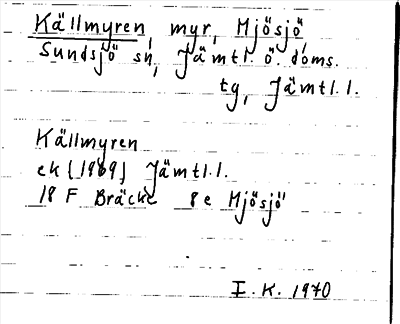 Källmyren, myr, Mjösjö,
Sundsjö sn, Jämtl. ö. doms.
tg, Jämtl. l.
Källmyren
ek (1969) Jämtl. l.
18 F Bräcke 8e Mjösjö
I. K. 1970